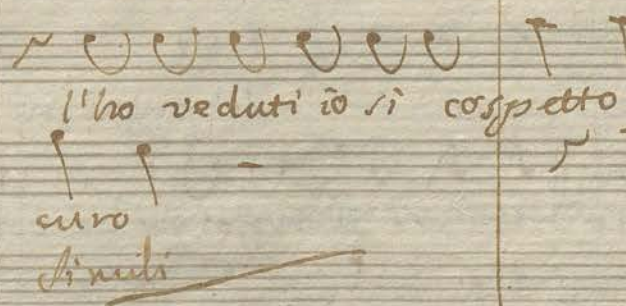 l'ho veduti io sì cospetto
curo
Simili